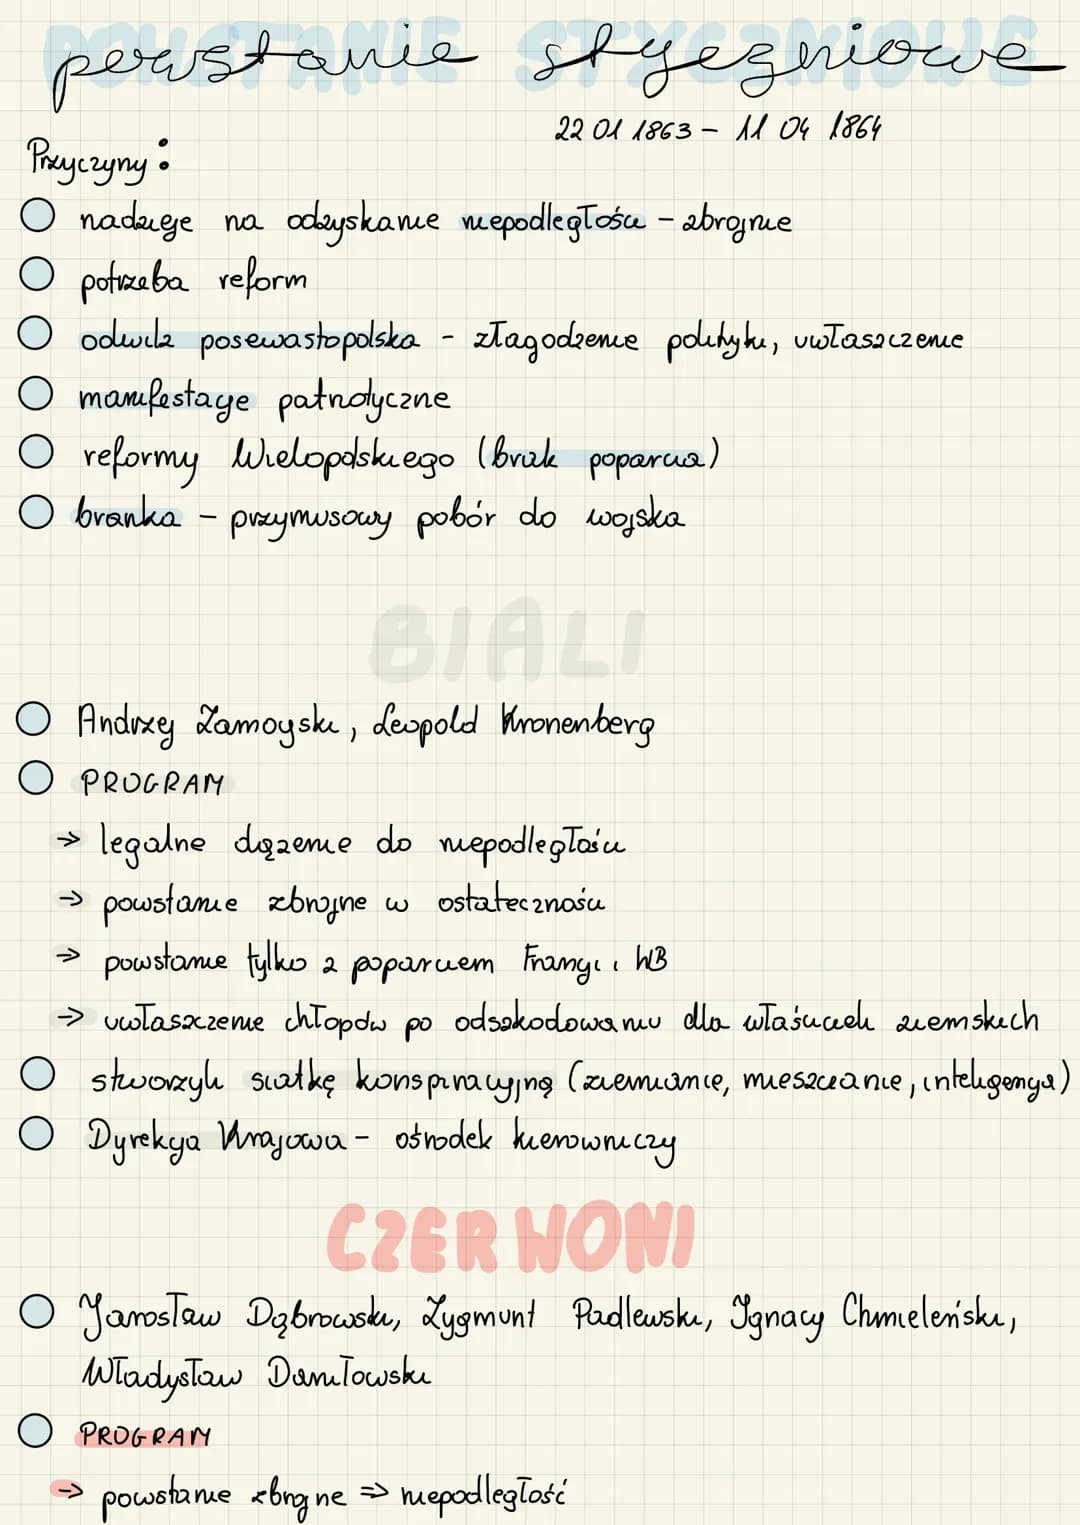 powstanie styczniowe
22 01 1863 – 11 04 1864
Przyczyny:
nadzieje na odzyskanie niepodległości – zbrojnie
potrzeba reform
odwilż posewastopolska - złagodzenie polityki, uwłaszczenie
manifestacje patriotyczne
reformy Wielopolskiego (brak poparcia)
branka – przymusowy pobór do wojska
BIALI
Andrzej Zamoyski, Leopold Kronenberg
PROGRAM
→ legalne dążenie do niepodległości
→ powstanie zbrojne w ostateczności
→ powstanie tylko z poparciem Francji i WB
→ uwłaszczenie chłopów po odszkodowaniu dla właścicieli ziemskich
stworzyli siatkę konspiracyjną (ziemianie, mieszczanie, inteligencja)
Dyrekcja Krajowa - ośrodek kierowniczy
CZERWONI
Jarosław Dąbrowski, Zygmunt Padlewski, Ignacy Chmieleński,
Władysław Daniłowski
PROGRAM
→ powstanie zbrojne ⇒ niepodległość